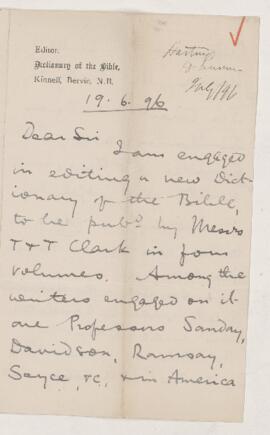 Editor.
Dictionary of the Bible.
Kinneff, Bervie, N.B.
July/96
19. 6. 96
Dear Sir
I am engaged
in editing a new Dict-
ionary of the Bible,
to be pubd. by Messrs
T & T Clark in four
volumes. Among the
writers engaged on it
are Professors Sanday,
Davidson, Ramsay,
Sayce, &c, & in America